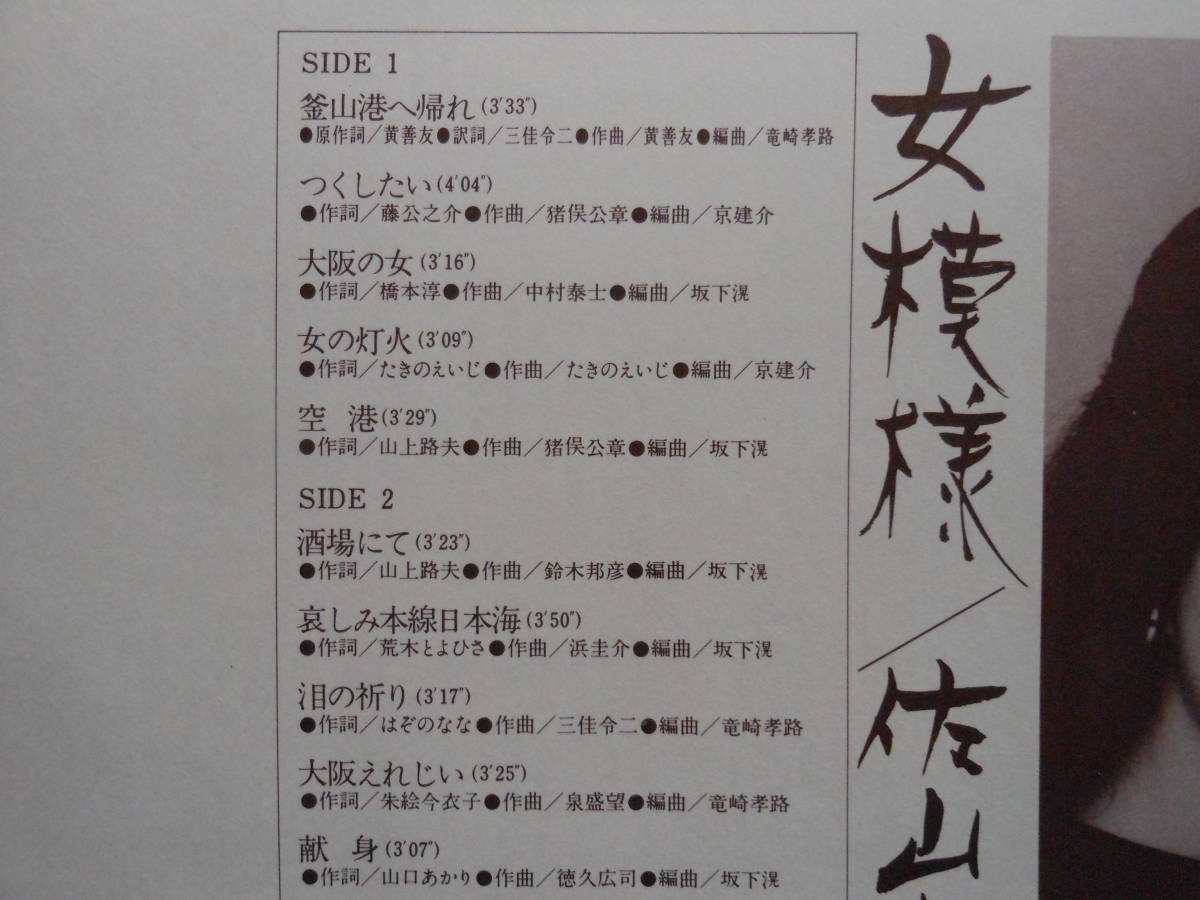 SIDE 1
釜山港へ帰れ(3'33")
●原作詞/黄善友●訳詞/三佳令二●作曲/黄善友●編曲/竜崎孝路
つくしたい(4'04")
●作詞/藤公之介●作曲/猪俣公章●編曲/京建介
大阪の女(3'16")
●作詞/橋本淳●作曲/中村泰士●編曲/坂下滉
女の灯火(3'09")
●作詞/たきのえいじ●作曲/たきのえいじ●編曲/京建介
空 港(3'29")
●作詞/山上路夫●作曲/猪俣公章●編曲/坂下滉
SIDE 2
酒場にて(3'23")
●作詞/山上路夫●作曲/鈴木邦彦●編曲/坂下滉
哀しみ本線日本海(3'50")
●作詞/荒木とよひさ●作曲/浜圭介●編曲/坂下滉
泪の祈り(3'17")
●作詞/はぞのなな●作曲/三佳令二●編曲/竜崎孝路
大阪えれじい(3'25")
●作詞/朱絵今衣子●作曲/泉盛望●編曲/竜崎孝路
献 身(3'07")
●作詞/山口あかり●作曲/徳久広司●編曲/坂下滉
女模様/佐山